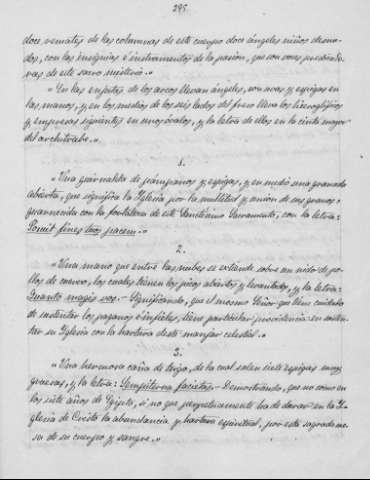 295.
doce remates de las columnas de este cuerpo doce ángeles niños desnu-
dos, con las insignias é instrumentos de la pasión, que son vivas
vas de este sacro misterio.»
"En las enjutas de los arcos llevan ángeles, con uvas y espigas en
las manos, y en los medios de los seis lados del friso lleva los hieroglíficos
y empresas siguientes en unos óvalos, y la letra de ellos en la cinta mayor
del architrabe.»
1.
"Una guirnalda de pámpanos y espigas, y en medio una granada
abierta, que significa la Iglesia por la multitud y union de sus granos:
guarnecida con la fortaleza de este Santísimo Sacramento, con la letra:
Posuit fines tuos pacem.»
2.
"Una mano que entre las nubes se extiende sobre un nido de po-
llos de cuervo, los cuales tienen los picos abiertos y levantados, y la letra:
Quanto magis vos.- Significando, que el mismo Señor que tiene cuidado
de sustentar los paganos é infieles, tiene particular providencia en susten-
tar su Iglesia con la hartura deste manjar celestial.»
3.
"Una hermosa caña de trigo, de la cual salen siete espigas muy
gruesas, y la letra: Sempiterna satietas.- Demostrando, que no como en
los siete años de Egipto, si no que perpetuamente ha de durar en la I-
glesia de Cristo la abundancia y hartura espiritual, por esta sagrada me-
sa de su cuerpo y sangre.»